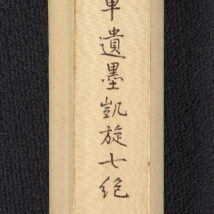 軍遺墨凱旋七絶